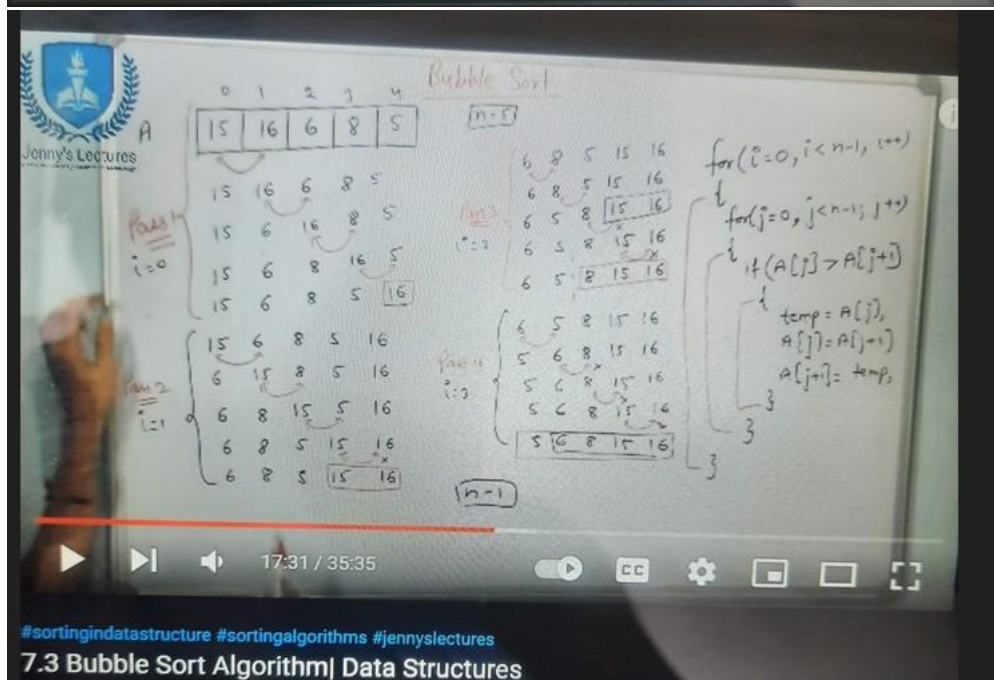 Bubble Sort
Jenny's Lectures
0 1 2 3 4
A 15 16 6 8 5
n=5
Pass 1
i=0
15 16 6 8 5
15 6 16 8 5
15 6 8 16 5
15 6 8 5 16
Pass 2
i=1
15 6 8 5 16
6 15 8 5 16
6 8 15 5 16
6 8 5 15 16
6 8 5 15 16
Pass 3
i=2
6 8 5 15 16
6 8 5 15 16
6 5 8 15 16
6 5 8 15 16
6 5 8 15 16
Pass 4
i=3
6 5 8 15 16
5 6 8 15 16
5 6 8 15 16
5 6 8 15 16
5 6 8 15 16
n-1
for(i=0, i<n-1, i++)
{
for(j=0, j<n-1; j++)
{
if(A[j] > A[j+1]
{
temp = A[j],
A[j]=A[j+1]
A[j+1]= temp,
}
}
}
17:31 / 35:35
CC
#sortingindatastructure #sortingalgorithms #jennyslectures
7.3 Bubble Sort Algorithm| Data Structures